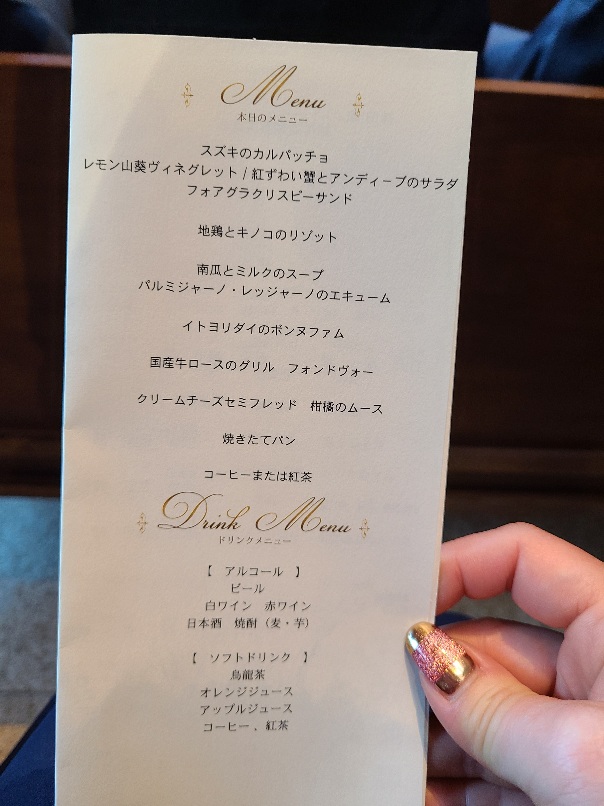 Menu
本日のメニュー
スズキのカルパッチョ
レモン山葵ヴィネグレット / 紅ずわい蟹とアンディーブのサラダ
フォアグラクリスピーサンド
地鶏とキノコのリゾット
南瓜とミルクのスープ
パルミジャーノ・レッジャーノのエキューム
イトヨリダイのボンヌファム
国産牛ロースのグリル　フォンドヴォー
クリームチーズセミフレッド　柑橘のムース
焼きたてパン
コーヒーまたは紅茶
Drink Menu
ドリンクメニュー
【　アルコール　】
ビール
白ワイン　赤ワイン
日本酒　焼酎（麦・芋）
【　ソフトドリンク　】
烏龍茶
オレンジジュース
アップルジュース
コーヒー、紅茶